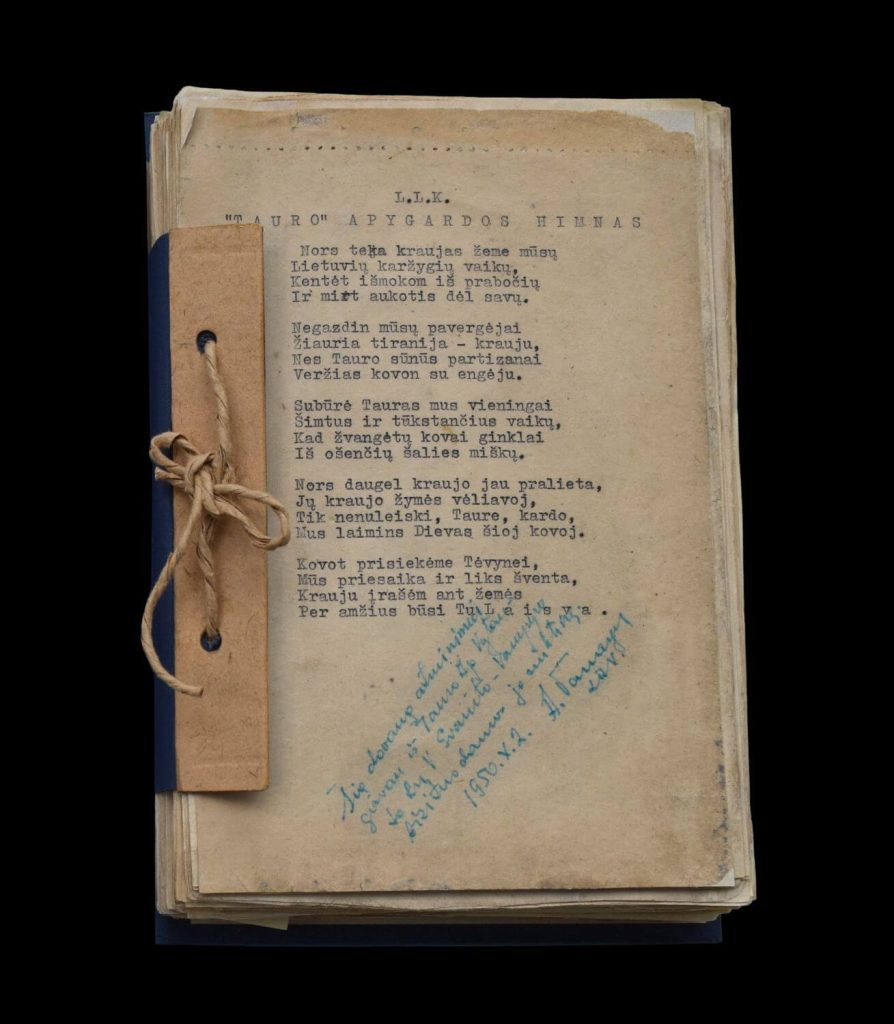 L.L.K.
"TAURO" APYGARDOS HIMNAS
Nors teka kraujas žeme mūsų
Lietuvių karžygių vaikų,
Kentėt išmokom iš prabočių
Ir mirt aukotis dėl savų.
Negazdin mūsų pavergėjai
Žiauria tiranija - krauju,
Nes Tauro sūnūs partizanai
Veržias kovon su engėju.
Subūrė Tauras mus vieningai
Šimtus ir tūkstančius vaikų,
Kad žvangėtų kovai ginklai
Iš ošenčių šalies miškų.
Nors daugel kraujo jau pralieta,
Jų kraujo žymės vėliavoj,
Tik nenuleiski, Taure, kardo,
Mus laimins Dievas šioj kovoj.
Kovot prisiekėme Tėvynei,
Mūs priesaika ir liks šventa,
Krauju įrašėm ant žemės
Per amžius būsi Tu L a i s v a .
Šią dovaną atminimui
gavau iš Tauro
1950.X.2. A.